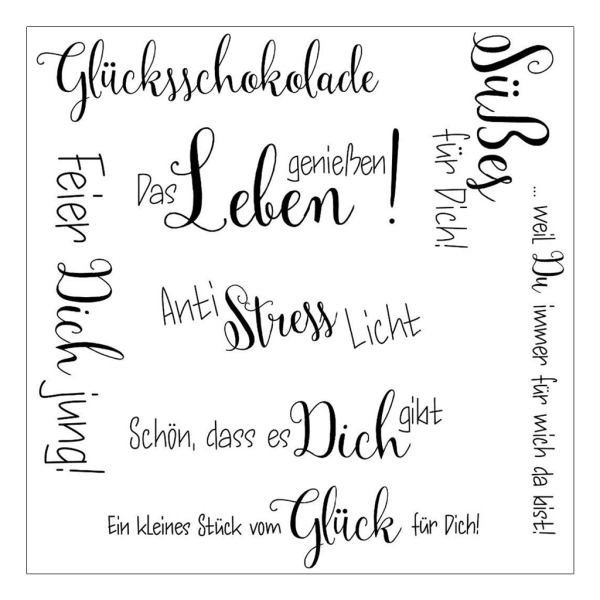 Glücksschokolade
Süßes
für Dich!
Das Leben genießen!
Feier Dich jung!
... weil Du immer für mich da bist!
Anti Stress Licht
Schön, dass es Dich gibt
Ein kleines Stück vom Glück für Dich!